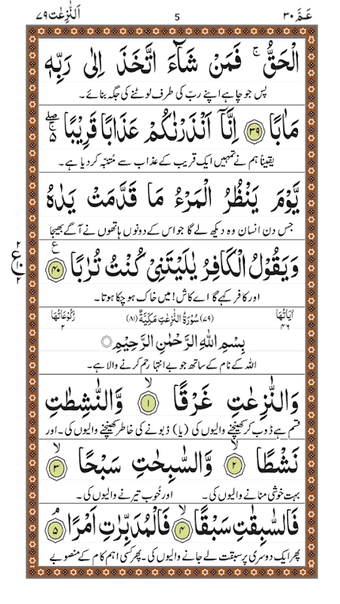 عَمَّ ٣٠ 5 اَلنّٰزِعٰت ٧٩
الْحَقُّ ۚ فَمَنْ شَآءَ اتَّخَذَ اِلٰى رَبِّهٖ
پس جو چاہے اپنے ربّ کی طرف لوٹنے کی جگہ بنائے۔
مَاٰبًا ﴿۳۹﴾ اِنَّاۤ اَنْذَرْنٰكُمْ عَذَابًا قَرِيْبًا ۖ
یقیناً ہم نے تمہیں ایک قریب کے عذاب سے متنبّہ کر دیا ہے۔
يَّوْمَ يَنْظُرُ الْمَرْءُ مَا قَدَّمَتْ يَدٰهُ
جس دن انسان وہ دیکھ لے گا جو اس کے دونوں ہاتھوں نے آگے بھیجا
وَيَقُوْلُ الْكَافِرُ يٰلَيْتَنِيْ كُنْتُ تُرٰبًا ﴿۴۰﴾
اور کافر کہے گا اے کاش! میں خاک ہو چکا ہوتا۔
اٰيَاتُهَا ٤٦ (٧٩) سُوْرَةُ النّٰزِعٰتِ مَكِّيَّةٌ (٨١) رُكُوْعَاتُهَا ٢
بِسْمِ اللّٰهِ الرَّحْمٰنِ الرَّحِيْمِ
اللہ کے نام کے ساتھ جو بے انتہا رحم کرنے والا ہے۔
وَالنّٰزِعٰتِ غَرْقًا ﴿۱﴾ وَّالنّٰشِطٰتِ
قسم ہے ڈوب کر کھینچنے والیوں کی (یا) ڈبونے کی خاطر کھینچنے والیوں کی۔ اور
نَشْطًا ﴿۲﴾ وَّالسّٰبِحٰتِ سَبْحًا ﴿۳﴾
بہت خوشی منانے والیوں کی۔ اور خُوب تیرنے والیوں کی۔
فَالسّٰبِقٰتِ سَبْقًا ﴿۴﴾ فَالْمُدَبِّرٰتِ اَمْرًا ﴿۵﴾
پھر ایک دوسری پر سبقت لے جانے والیوں کی۔ پھر کسی اہم کام کے منصوبے